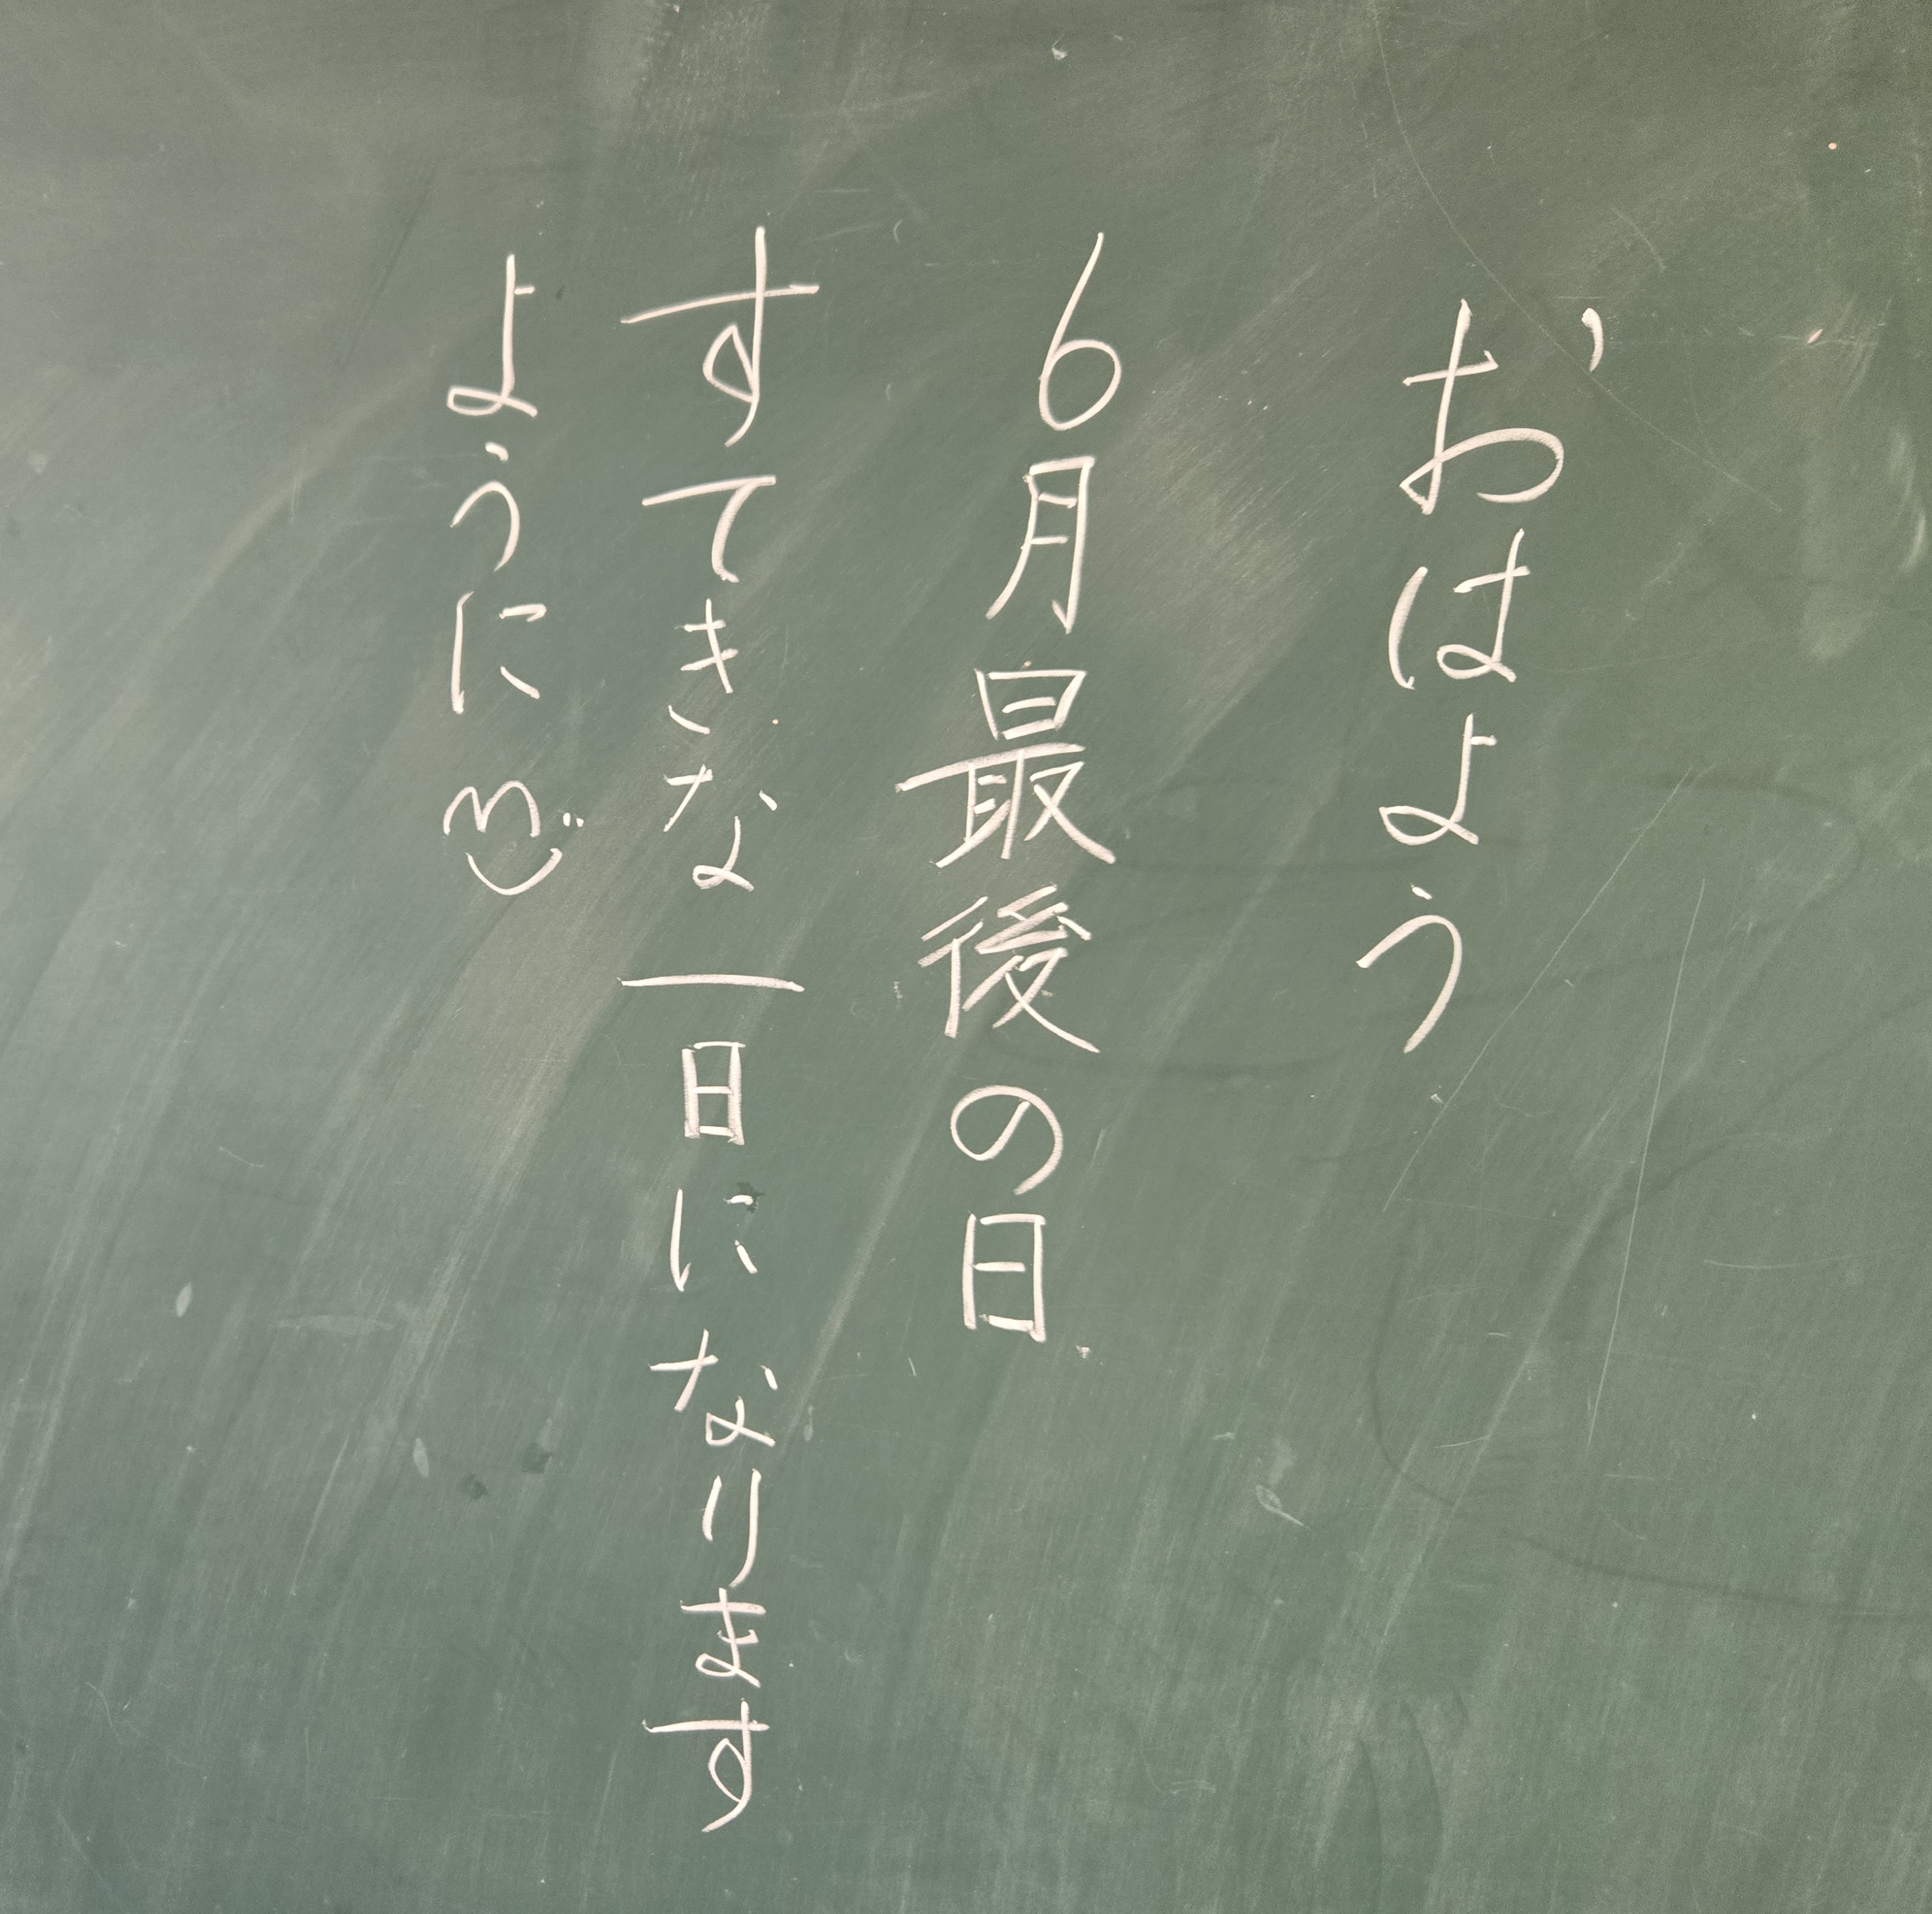 おはよう
6月最後の日
すてきな一日になります
ように